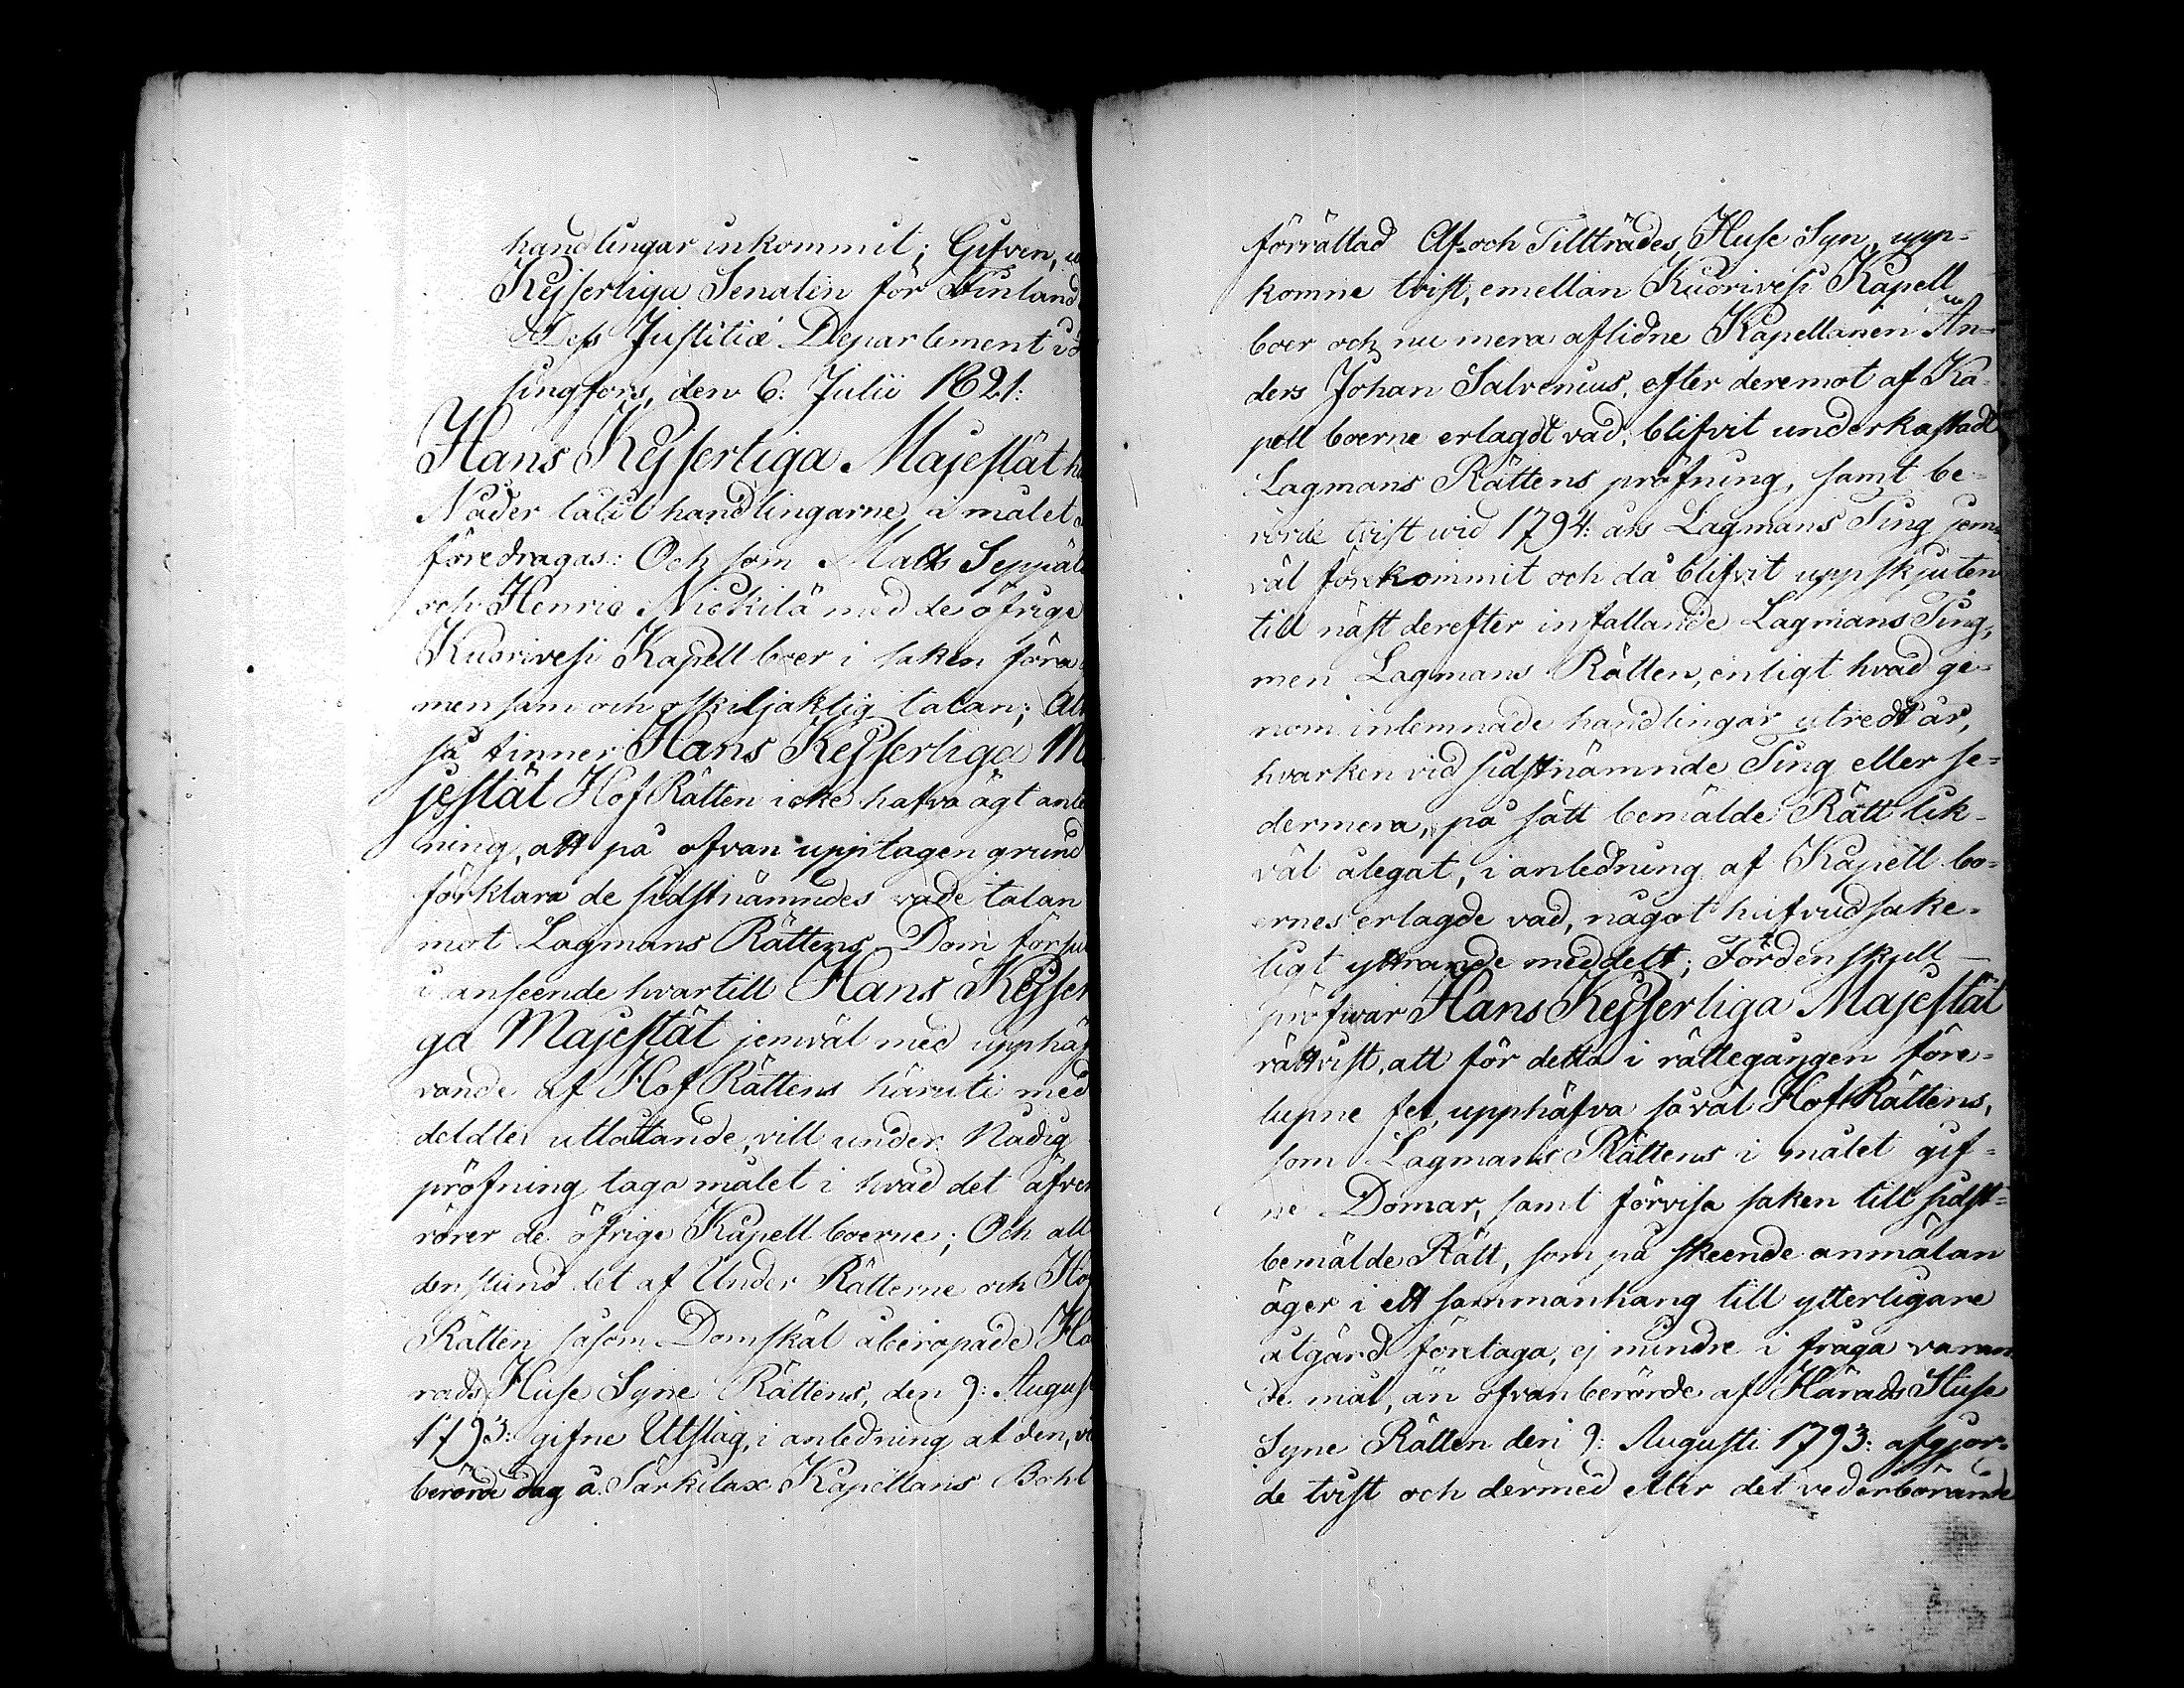 handlingar inkommit; Gifven, u
Kejserliga Senaten för Finland
Dess Justitiæ Departement i
singfors, den 6. Julii 1821:
Hans Kejserliga Majestät h
Nåder låtit handlingarne i målet
föredragas: Och som Matts Seppäl
och Henric Nickilä med de öfrige
Kuorivesi Kapellboer i saken föra
mensam och oskiljaktig talan; Alt
så finner Hans Kejserliga M
jestät Hof Rätten icke hafva ägt anle
ning, att på ofvan upptagen grund
förklara de sidstnämndes vade talan
mot Lagmans Rättens Dom försu
i anseende hvartill Hans Kejser
ga Majestät jemväl med upphäf
vande af Hof Rättens häruti med
deldte utlåtande, vill under Nådig
pröfning taga målet i hvad det äfven
rörer de öfrige Kapellboerne; Och all
denstund det af Under Rätterne och Hof
Rätten såsom Domskäl åberopade Hä
rads Huse Syne Rättens, den 9: August
1793: gifne Utslag, i anledning af den, vi
berörde dag å Särkilax Kapellans Bohl
förrättad Af- och Tillträdes Huse Syn, upp-
komne tvist, emellan Kuorivesi Kapell
boer och nu mera aflidne Kapellanen An-
ders Johan Salvenius, efter deremot af Ka-
pell boerne erlagdt vad, blifvit underkastadt
Lagmans Rättens pröfning, samt be-
rörde tvist wid 1794: års Lagmans Ting jem-
väl förekommit och då blifvit uppskjuten
till näst derefter infallande Lagmans Ting,
men Lagmans Rätten, enligt hvad ge-
nom inlemnade handlingar utredt är,
hvarken vid sidstnämnde Ting eller se-
dermera, på sätt bemälde Rätt lik-
väl ålegat, i anledning af Kapell bo-
ernes erlagde vad, något hufvudsake-
ligt yttrande meddelt; Fördenskull
pröfwar Hans Kejserliga Majestät
rättvist, att för detta i rättegången före-
lupne fel, upphäfva såväl Hof Rättens,
som Lagmans Rättens i målet gif-
ne Domar, samt förvisa saken till sidst-
bemälde Rätt, som på skeende anmälan
äger i ett sammanhang till ytterligare
åtgärd företaga, ej mindre i fråga varan
de mål, än ofvanberörde af Härads Huse
Syne Rätten den 9: Augusti 1793: afgjor-
de tvist och dermed efter det vederbörande